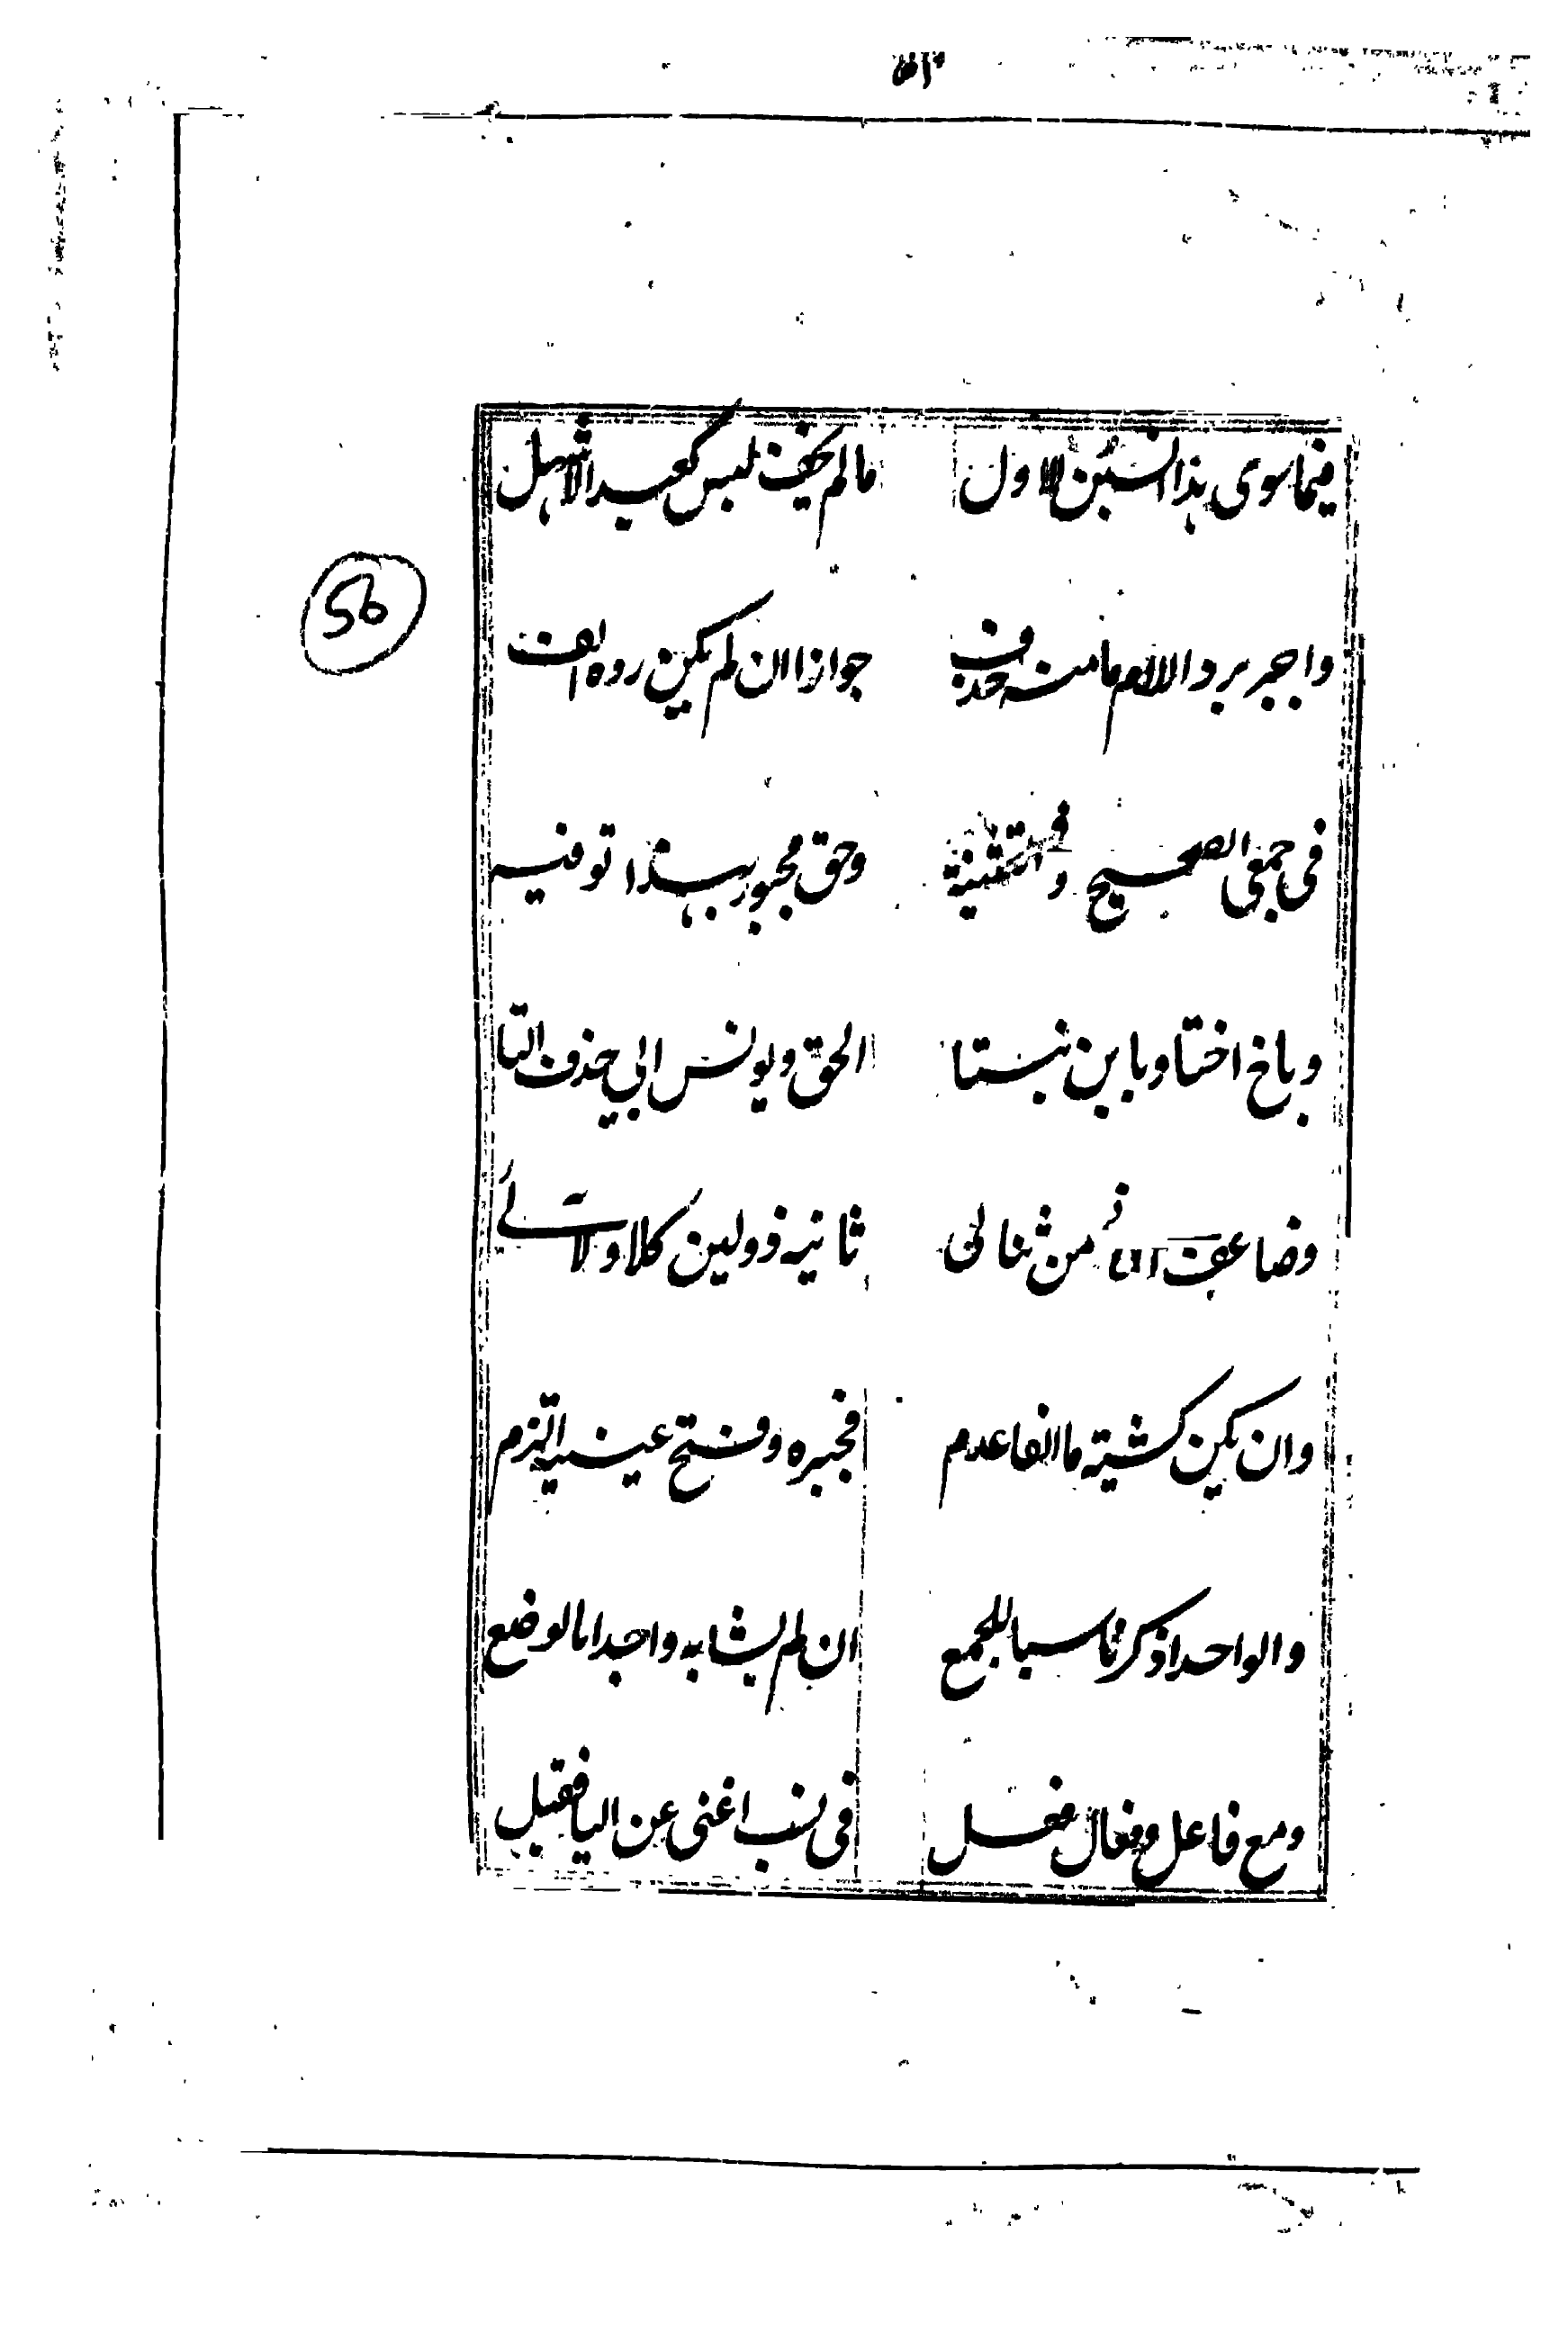 فيما سوى هذا انسبن للاول ما لم يخف لبس كعبد الاشهل
56
واجبر برد اللام ما منه حذف جوازا ان لم يكن رده الف
فى جمعى الصحيح وفى التثنية وحق مجبور بهذا توفيه
وباخ اختا وبابن بنتا الحق ويونس ابى حذف التا
وضاعف الثانى من ثنائى ثانيه ذو لين كلا ولائى
وان يكن كشية ما الفا عدم فجبره وفتح عينه التزم
والواحد اذكر ناسبا للجمع ان لم يشابه واحدا بالوضع
ومع فاعل وفعال فعل فى نسب اغنى عن اليا فقبل